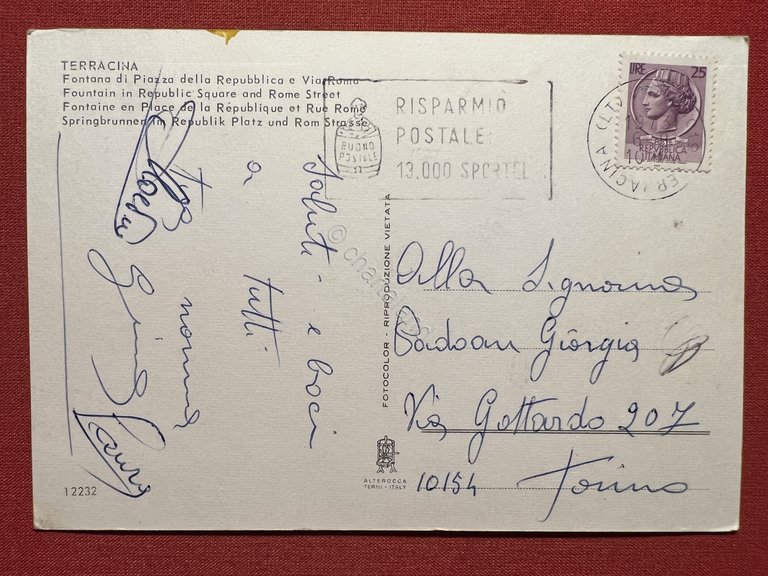 TERRACINA
Fontana di Piazza della Repubblica e Via Roma
Fountain in Republic Square and Rome Street
Fontaine en Place de la République et Rue Rome
Springbrunnen in Republik Platz und Rom Strasse
BUONO
POSTALE
RISPARMIO
POSTALE
13.000 SPORTEL
LIRE 25
REPUBBLICA
ITALIANA
Saluti e baci
a tutti
nonna
Gina
Laura
FOTOCOLOR - RIPRODUZIONE VIETATA
Alla Signorina
Padoan Giorgia
Via Gottardo 207
10154 Torino
ALTEROCCA
TERNI - ITALY
12232